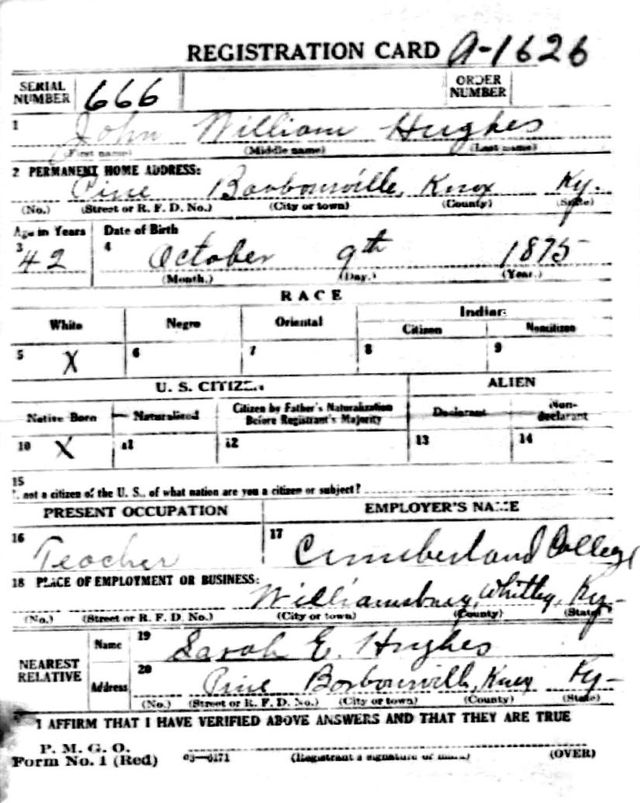 REGISTRATION CARD A-1626
SERIAL NUMBER 666 ORDER NUMBER
1 John William Hughes
(First name) (Middle name) (Last name)
2 PERMANENT HOME ADDRESS:
Pine Barbourville, Knox Ky.
(No.) (Street or R. F. D. No.) (City or town) (County) (State)
Age in Years Date of Birth
3 42 4 October 9th 1875
(Month.) (Day.) (Year.)
RACE
White Negro Oriental Indian
Citizen Noncitizen
5 X 6 7 8 9
U. S. CITIZEN ALIEN
Native Born Naturalized Citizen by Father's Naturalization Before Registrant's Majority Declarant Non-declarant
10 X 11 12 13 14
15
not a citizen of the U. S., of what nation are you a citizen or subject?
PRESENT OCCUPATION EMPLOYER'S NAME
16 Teacher 17 Cumberland College
18 PLACE OF EMPLOYMENT OR BUSINESS:
Williamsburg, Whitley, Ky.
(No.) (Street or R. F. D. No.) (City or town) (County) (State)
NEAREST RELATIVE Name 19 Sarah E. Hughes
Address 20 Pine Barbourville, Knox Ky-
(No.) (Street or R. F. D. No.) (City or town) (County) (State)
I AFFIRM THAT I HAVE VERIFIED ABOVE ANSWERS AND THAT THEY ARE TRUE
P. M. G. O.
Form No. 1 (Red) 03-6171 (Registrant's signature or mark) (OVER)